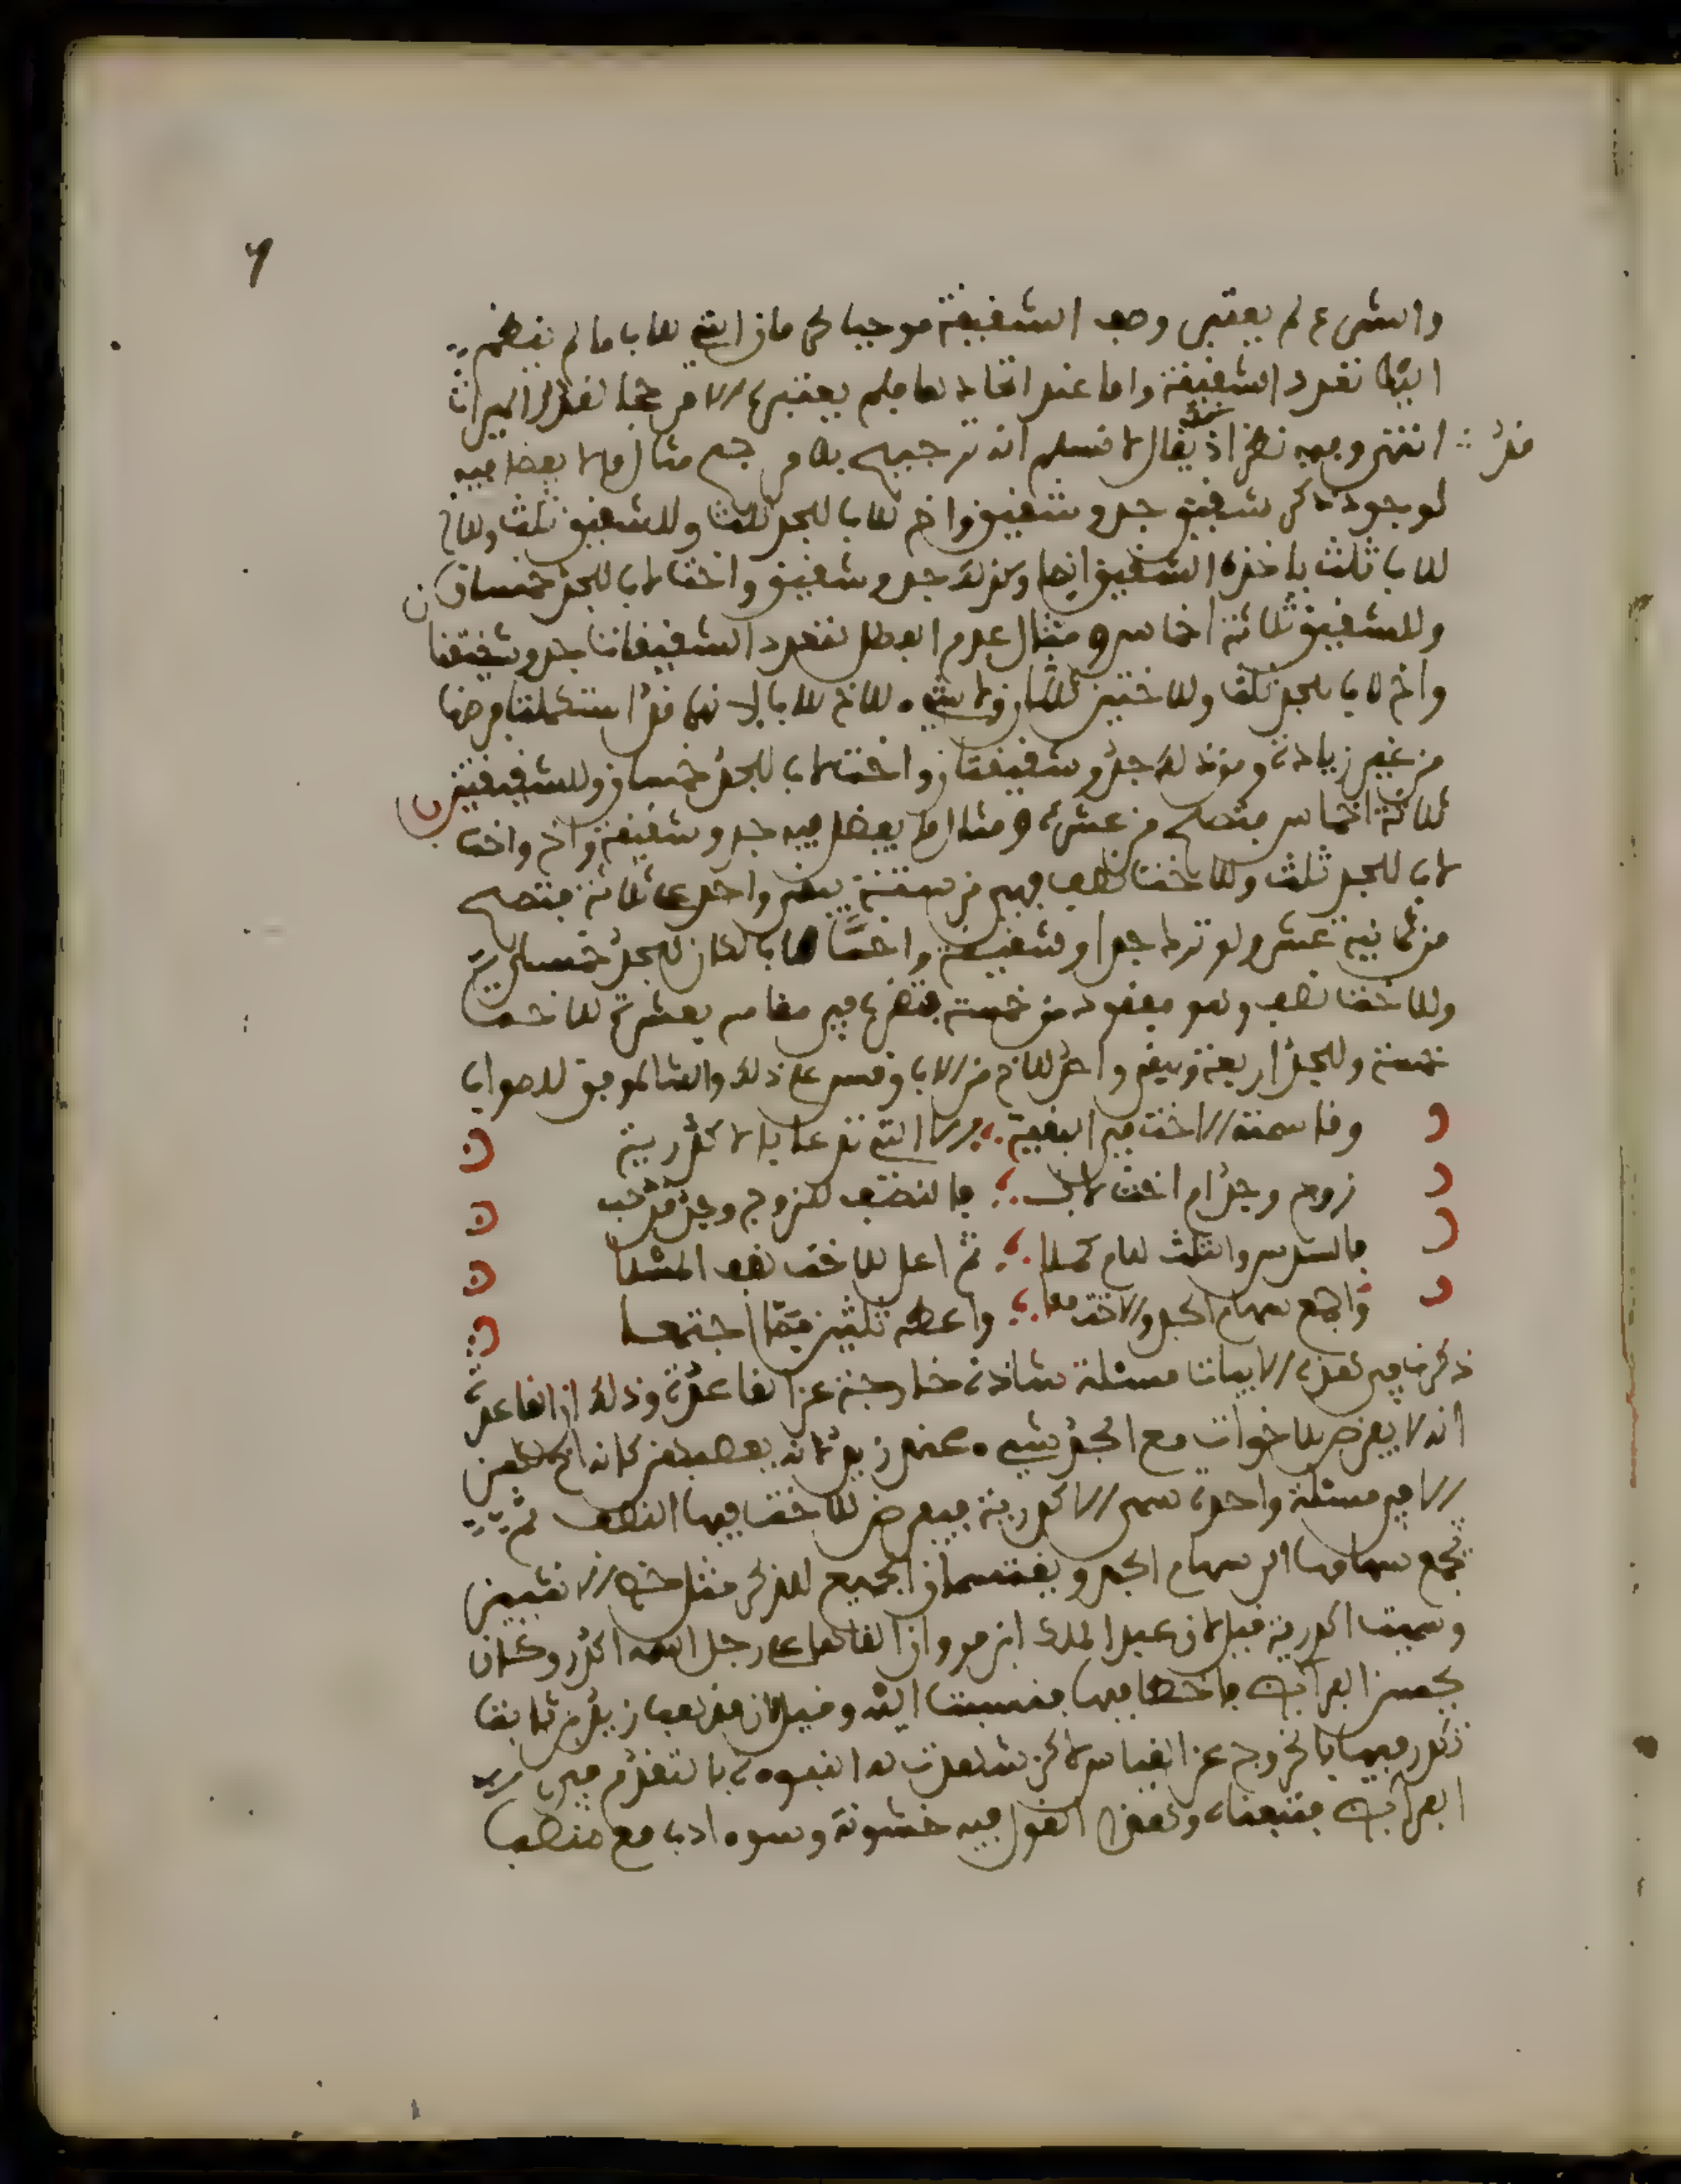 والشرع لم يعتبر وصف الشقيقة موجبا لحرمان التي للاب ما لم ينضم
اليها تعدد الشقيقة واما عند اتحادها فلم يعتبره الا مرجحا لقدر الميراث
انتهى وفيه نظر اذ قد يقال لا نسلم انه ترجيح بلا مرجح مثال ما لا يفضل فيه
لوجود ذكر شقيق جد وشقيق واخ للاب للجد ثلث وللشقيق ثلث وللاخ
للاب ثلث ياخذه الشقيق ايضا وكذلك جد وشقيق واخت لاب للجد خمسان
وللشقيق ثلاثة اخماس ومثال عدم الفضل لتعدد الشقيقات جد وشقيقتان
واخ لاب للجد ثلث وللاختين ثلثان ولا شيء للاخ للاب لانهما قد استكملتا فرضهما
من غير زيادة ومن ذلك جد وشقيقتان واخت لاب للجد خمسان وللشقيقتين
ثلاثة اخماس فتصح من عشرة ومثال ما يفضل فيه جد وشقيقة واخ واخت
لاب للجد ثلث وللاخت نصف فهي من ستة يبقى واحد على ثلاثة فتصح
من ثمانية عشر ولو ترك جدا وشقيقة واخا لاب لكان للجد خمسان
وللاخت نصف وهو مفقود من خمسة فتضرب في مقامه بعشرة للاخت
خمسة وللجد اربعة ويبقى واحد للاخ من الاب وقس على ذلك والله الموفق للصواب
وقاسمته الاخت في البقية ؛ في التي تدعا بالاكدرية
زوج وجد ام اخت لاب ؛ فالنصف للزوج وجد قد حب
فالسدس والثلث للام كملا ؛ ثم اعل للاخت نصف المثلا
واجمع سهام الجد والاخت معا ؛ واعطه ثلثين مما اجتمعا
ذكر في هذه الابيات مسئلة شاذة خارجة عن القاعدة وذلك ان القاعدة
انه لا يفرض للاخوات مع الجد شيء عند زيد لانه يعصبهن كانه اخ لهن
الا في مسئلة واحدة تسمى الاكدرية فيفرض للاخت فيها النصف ثم
تجمع سهامها الى سهام الجد ويقتسمان الجميع للذكر مثل حظ الانثيين
وسميت اكدرية قيل لان عبد الملك ابن مروان القاها على رجل اسمه اكدر وكان
يحسن الفرائض فاخطا فيها فنسبت اليه وقيل لان مذهب زيد بن ثابت
تكدر فيها بالخروج عن القياس لاكن شهدت له النبوءة بالتقدم في
الفرائض فتبعناه وهذا القول فيه خشونة وسوء ادب مع منصب